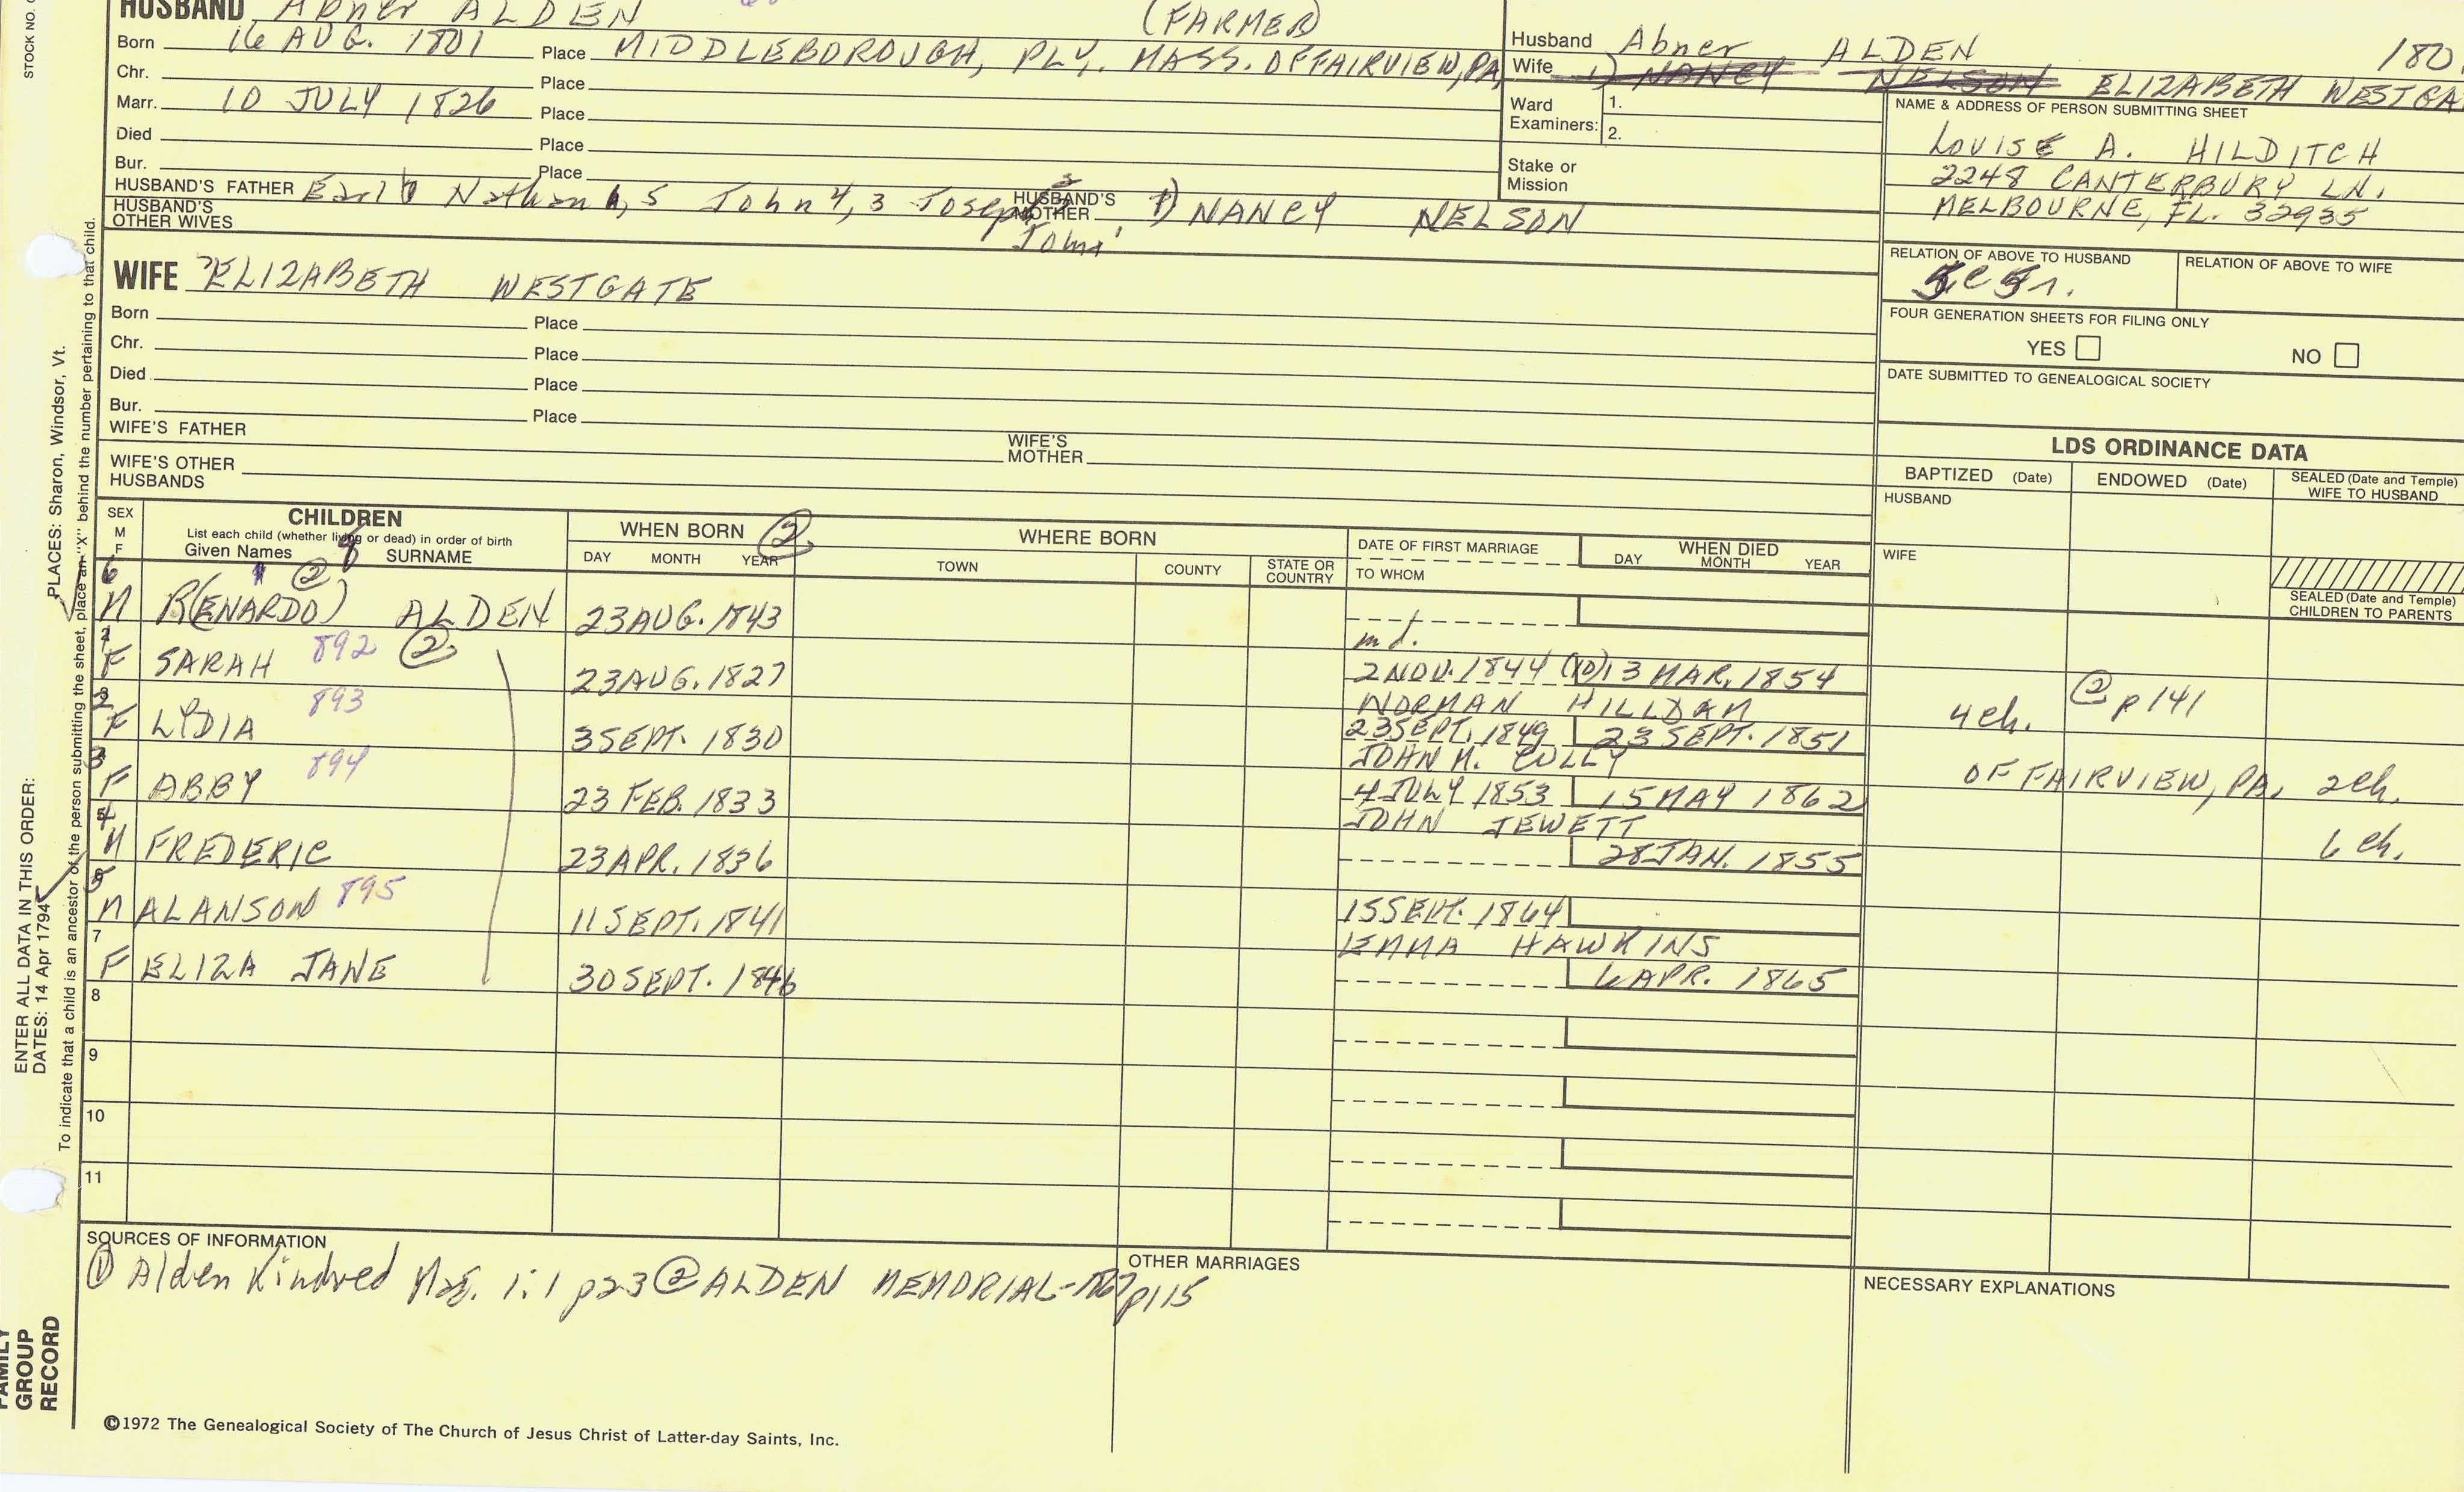 HUSBAND Abner ALDEN (FARMER)
Born 16 AUG. 1801 Place MIDDLEBOROUGH, PLY. MASS. OF FAIRVIEW, PA
Chr. Place
Marr. 10 JULY 1826 Place
Died Place
Bur. Place
HUSBAND'S FATHER Earl 6 Nathan 5 John 4, 3 Joseph 2 John 1 HUSBAND'S MOTHER 1) NANCY NELSON
HUSBAND'S OTHER WIVES
WIFE ELIZABETH WESTGATE
Born Place
Chr. Place
Died Place
Bur. Place
WIFE'S FATHER WIFE'S MOTHER
WIFE'S OTHER HUSBANDS
Husband Abner ALDEN 180
Wife 1) NANCY NELSON ELIZABETH WESTGA
Ward Examiners: 1.
2.
Stake or Mission
NAME & ADDRESS OF PERSON SUBMITTING SHEET
LOUISE A. HILDITCH
2248 CANTERBURY LN.
MELBOURNE, FL. 32935
RELATION OF ABOVE TO HUSBAND RELATION OF ABOVE TO WIFE
FOUR GENERATION SHEETS FOR FILING ONLY
YES NO
DATE SUBMITTED TO GENEALOGICAL SOCIETY
LDS ORDINANCE DATA
BAPTIZED (Date) ENDOWED (Date) SEALED (Date and Temple) WIFE TO HUSBAND
HUSBAND
WIFE
SEALED (Date and Temple) CHILDREN TO PARENTS
SEX M F CHILDREN WHEN BORN ② WHERE BORN DATE OF FIRST MARRIAGE WHEN DIED
List each child (whether living or dead) in order of birth
Given Names SURNAME DAY MONTH YEAR TOWN COUNTY STATE OR COUNTRY TO WHOM DAY MONTH YEAR
6 ②
M R(ENARDO) ALDEN 23 AUG. 1843
md.
F SARAH 892 ② 23 AUG. 1827 2 NOV. 1844 (10) 13 MAR. 1854
NORMAN 4 ch. ② p 141
F LYDIA 893 3 SEPT. 1830 23 SEPT. 1849 23 SEPT. 1851
JOHN M. CULLY OF FAIRVIEW, PA. 2 ch.
F ABBY 894 23 FEB. 1833 4 JULY 1853 15 MAY 1862
JOHN JEWETT 6 ch.
M FREDERIC 23 APR. 1836 28 JAN. 1855
M ALANSON 895 11 SEPT. 1841 15 SEPT. 1864
EMMA HAWKINS
7
F ELIZA JANE 30 SEPT. 1846 6 APR. 1865
8
9
10
11
SOURCES OF INFORMATION
① Alden Kindred Mag. 1:1 p23 ② ALDEN MEMORIAL-1867 p115
OTHER MARRIAGES
NECESSARY EXPLANATIONS
©1972 The Genealogical Society of The Church of Jesus Christ of Latter-day Saints, Inc.
STOCK NO.
ENTER ALL DATA IN THIS ORDER:
DATES: 14 Apr 1794 PLACES: Sharon, Windsor, Vt.
To indicate that a child is an ancestor of the person submitting the sheet, place an "X" behind the number pertaining to that child.
FAMILY
GROUP
RECORD